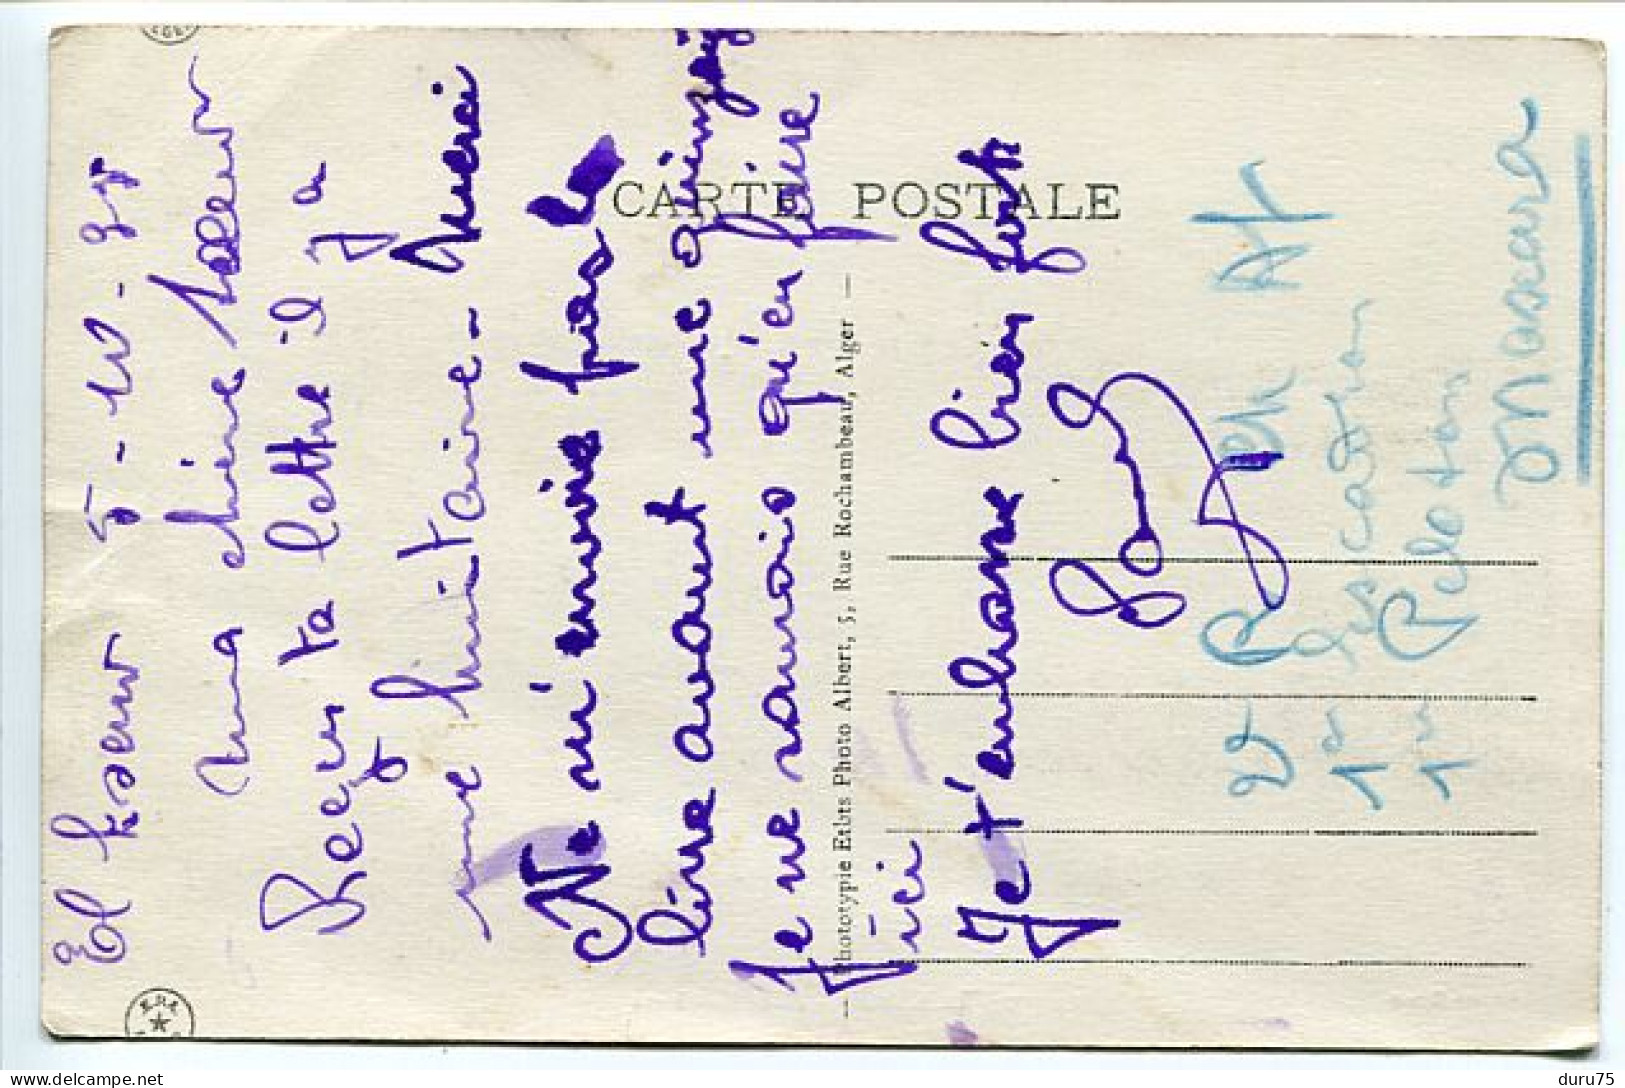 El Kseur 5-10-
ma chère
Reçu ta lettre il y a
une huitaine - Merci
Ne m'envoie pas le
livre avant une
Je ne saurais qu'en faire
ici
Je t'embrasse bien fort
Paul
CARTE POSTALE
— Phototypie Etbts Photo Albert, 5, Rue Rochambeau, Alger —
E.P.A
2e
1er Escadron
1er Peloton
Mascara
delcampe.net
duru75